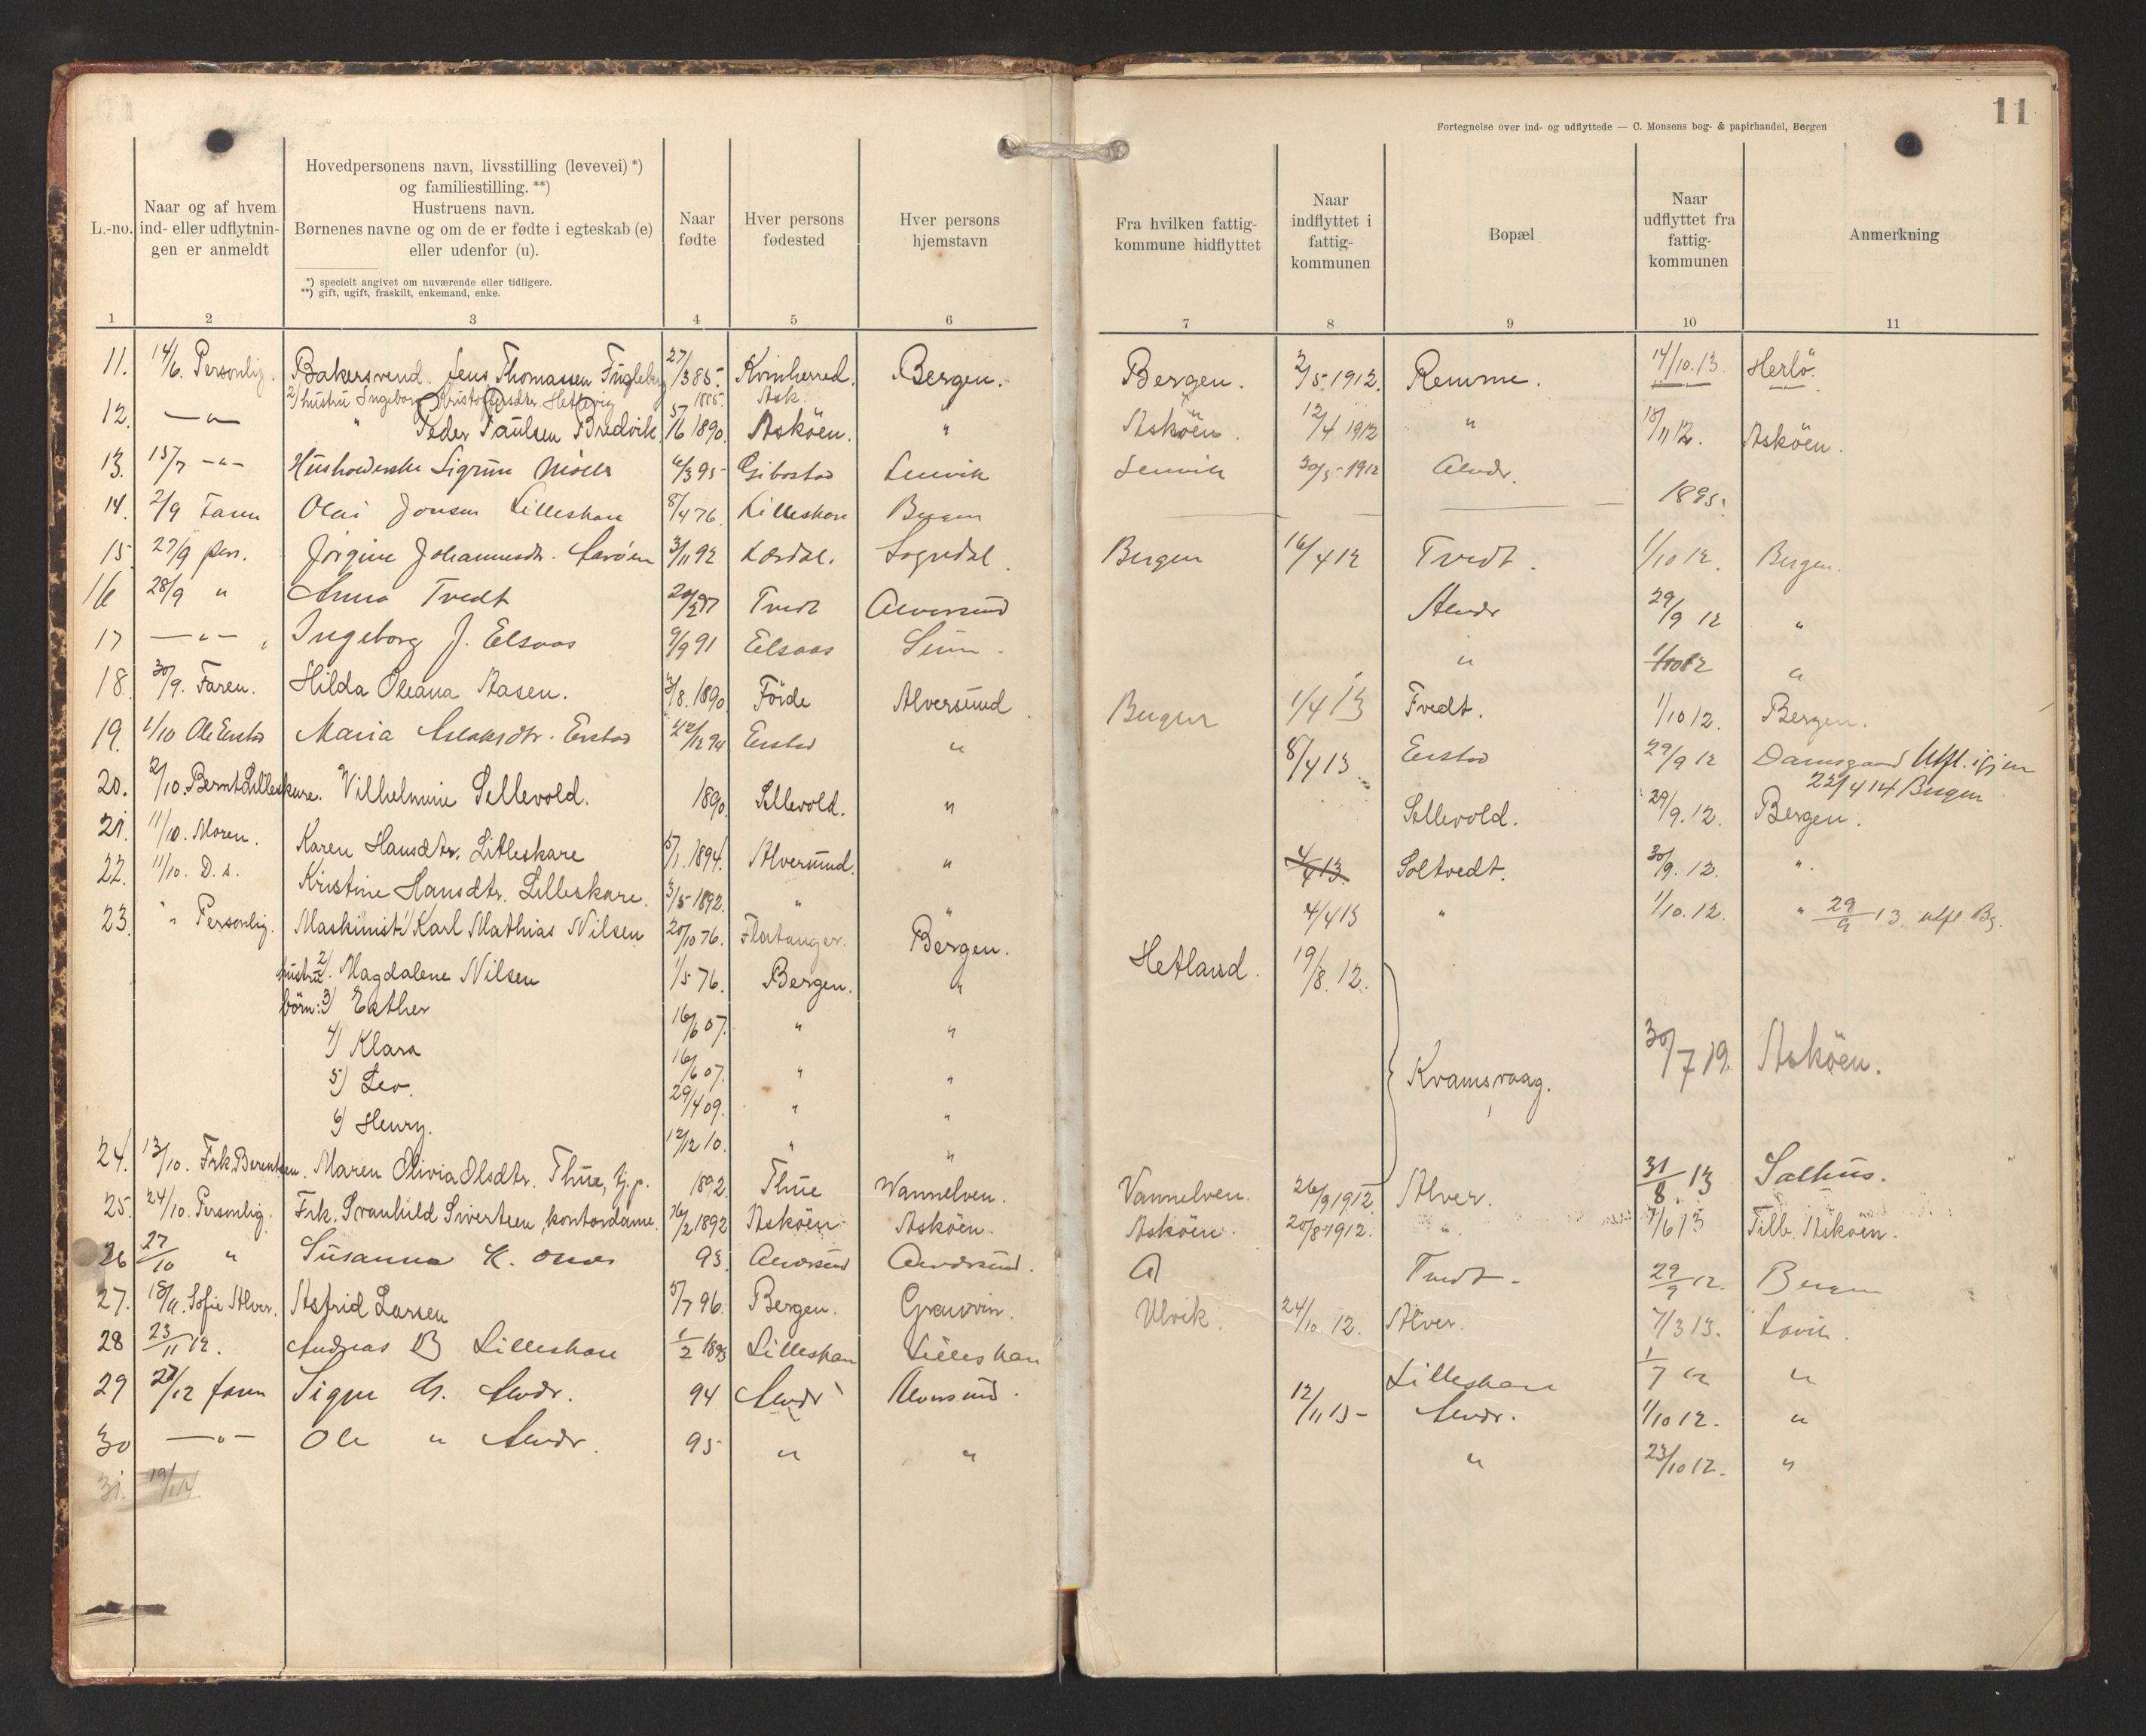 11
Fortegnelse over ind- og udflyttede — C. Monsens bog- & papirhandel, Bergen
L.-no.
Naar og af hvem ind- eller udflytnin- gen er anmeldt
Hovedpersonens navn, livsstilling (levevei) *)
og familiestilling. **)
Hustruens navn.
Børnenes navne og om de er fødte i egteskab (e)
eller udenfor (u).
*) specielt angivet om nuværende eller tidligere.
**) gift, ugift, fraskilt, enkemand, enke.
Naar fødte
Hver persons fødested
Hver persons hjemstavn
Fra hvilken fattig- kommune hidflyttet
Naar indflyttet i fattig- kommunen
Bopæl
Naar udflyttet fra fattig- kommunen
Anmerkning
1 2 3 4 5 6 7 8 9 10 11
11. 14/6. Personlig. Bakersvend. Jens Thomassen Fugleberg 27/3 85. Kvinherred. Bergen. Bergen. 2/5. 1912. Remme. 14/10. 13. Herlö.
2) hustru Ingeborg 1885. Ask.
12. — " — " Peder Paulsen Bredvik 5/6 1890. Asköen. " Asköen. 12/4 1912 " 18/11 12. Asköen.
13. 15/7 — " — Husholderske Sigrun Möller 6/3 95 Gibostad Lenvik Lenvik 30/5 1912 Alvær.
14. 2/9 Faren Olai Jonsen Lilleskare 8/4 76. Lilleskare Bergen — — — 1895.
15 27/9 pers. Jörgine Johannesdtr. 3/11 92 Lærdal. Sogndal. Bergen 16/4 12 Tvedt. 1/10 12. Bergen.
16 28/9 " Anna Tvedt 20/2 97 Tvedt Alversund Alvær 29/9 12 "
17 — " — Ingeborg J. Elsaas 9/9 91 Elsaas Seim " 1/10 12 "
18. 30/9. Faren. Hilda Oleana Aasen. 3/8. 1890 Förde Alversund Bergen 1/4 13 Tvedt. 1/10 12. Bergen.
19. 1/10 Ole Erstad Maria Erstad 22/12 94 Erstad " 8/4 13 Erstad 29/9 12 Damsgaard Utfl. igjen
22/4 14 Bergen
20. 2/10. Bernt Lilleskare. Vilhelmine Sellevold. 1890. Sellevold. " Sellevold. 29/9. 12. Bergen.
21. 11/10. Moren. Karen Hansdtr. Lilleskare 5/1. 1894. Alversund. " 4/4 13. Soltvedt. 30/9. 12. ".
22. 11/10. D. s. Kristine Hansdtr. Lilleskare. 3/5 1892. " " 4/4 13 " 1/10. 12. " 29/9 13. utfl. Bg.
23. " Personlig. Maskinist 1) Karl Mathias Nilsen 20/10 76. Flatanger. Bergen. Hetland. 19/8. 12. Kvamsvaag. 30/7 19. Asköen.
hustru 2). Magdalene Nilsen 1/5 76. Bergen. "
börn: 3) Esther 16/6 07. " "
4) Klara 16/6 07. " "
5) Leo. 29/4 09. " "
6) Henry. 12/12 10. " "
24. 13/10. Frk. Berentsen. Maren Olivia Olsdtr. Thue, tj.p. 1892. Thue Wannelven. Vannelven. 26/9 1912. Alver. 31/8. 13 Salhus.
25. 24/10. Personlig. Frk. Svanhild Sivertsen, kontordame. 16/2 1892 Asköen Asköen. Asköen. 20/8 1912. ". 7/6 13 Tilb. Asköen.
26 27/10 " Susanna K. 93. Alversund Alversund. A Tvedt 29/9 12. Bergen
27. 18/11. Sofie Alver. Astrid Larsen 5/7 96. Bergen. Graven. Ulvik. 24/10. 12. Alver. 7/3 13. Lavik.
28 23/11 12. Andreas B Lilleskare 1/2 1893 Lilleskare Lilleskare Lilleskare 1/7 12 "
29 27/12 faren Signe Alvær. 94 Alvær Alversund. 12/11 15 Alvær. 1/10 12. "
30 — " — Ole " Alvær. 95 " " " 23/10 12. "
31. 19/1 14.